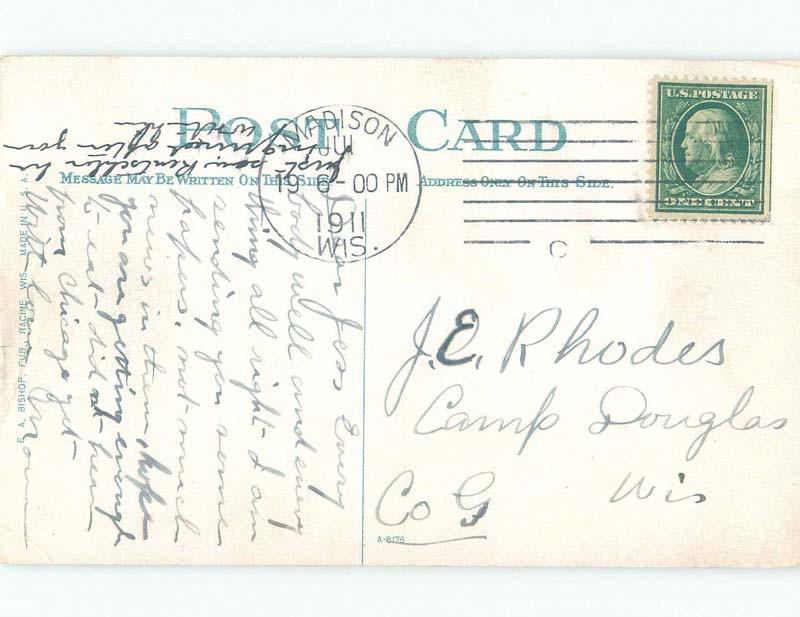 POST CARD
MESSAGE MAY BE WRITTEN ON THIS SIDE.
ADDRESS ONLY ON THIS SIDE.
U.S. POSTAGE
ONE CENT
MADISON
JUL
9 6-00 PM
1911
WIS.
C
J.E. Rhodes
Camp Douglas
Wis
Co G
A-8176
E. A. BISHOP, PUB., RACINE, WIS. MADE IN U.S.A.
Dear Jess Every
body well and every
thing all right- I am
sending you some
papers, not much
news in them, hope
you are getting enough
to eat- did not hear
from Chicago yet-
Write Mom
just saw he
inquired after you